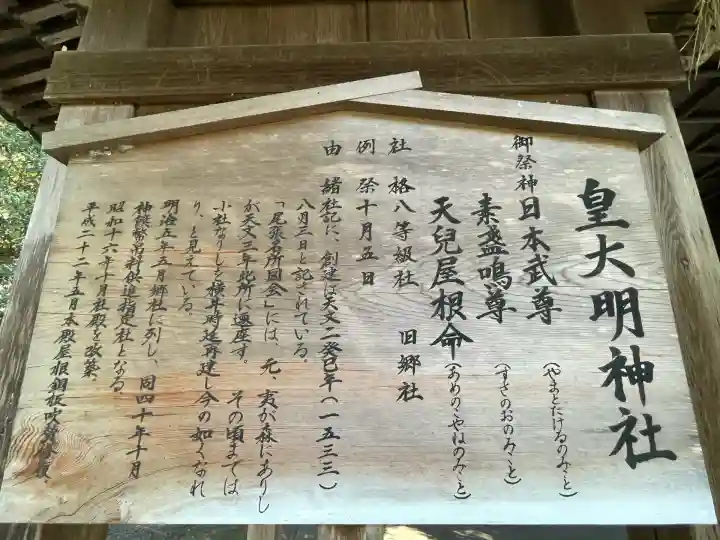 皇大明神社
御祭神 日本武尊(やまとたけるのみこと)
素盞鳴尊(すさのおのみこと)
天兒屋根命(あめのこやねのみこと)
社格 八等級社 旧郷社
例祭 十月五日
由緒 社記に、創建は天文二癸巳年(一五三三)
八月三日と記されている。
「尾張名所図会」には、元、夷が森にありし
が天文二年此所に遷座す。 その頃までは
小社なりしを横井時延再建し今の如くなれ
り、と見えている。
明治五年五月郷社に列し、同四十年十月
神饌幣帛料供進指定社となる
昭和十六年十月社殿を改築
平成二十二年五月本殿屋根銅板吹